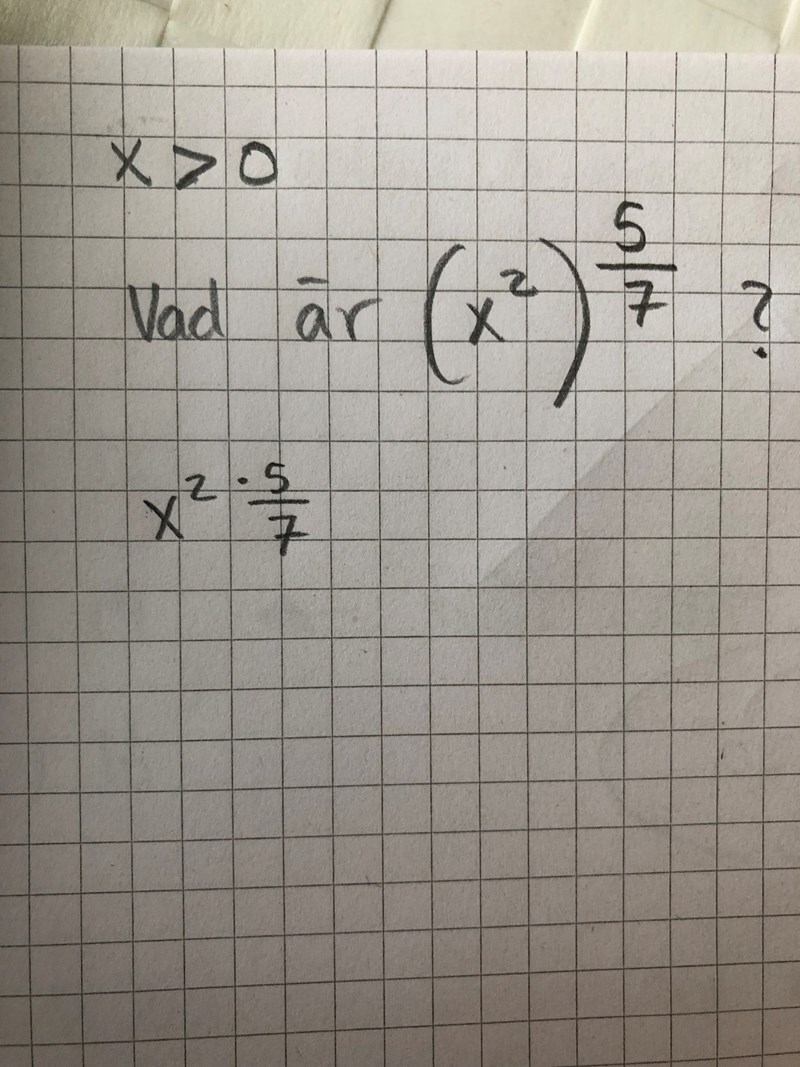 x > 0
Vad är (x²)^(5/7) ?
x^(2 · 5/7)